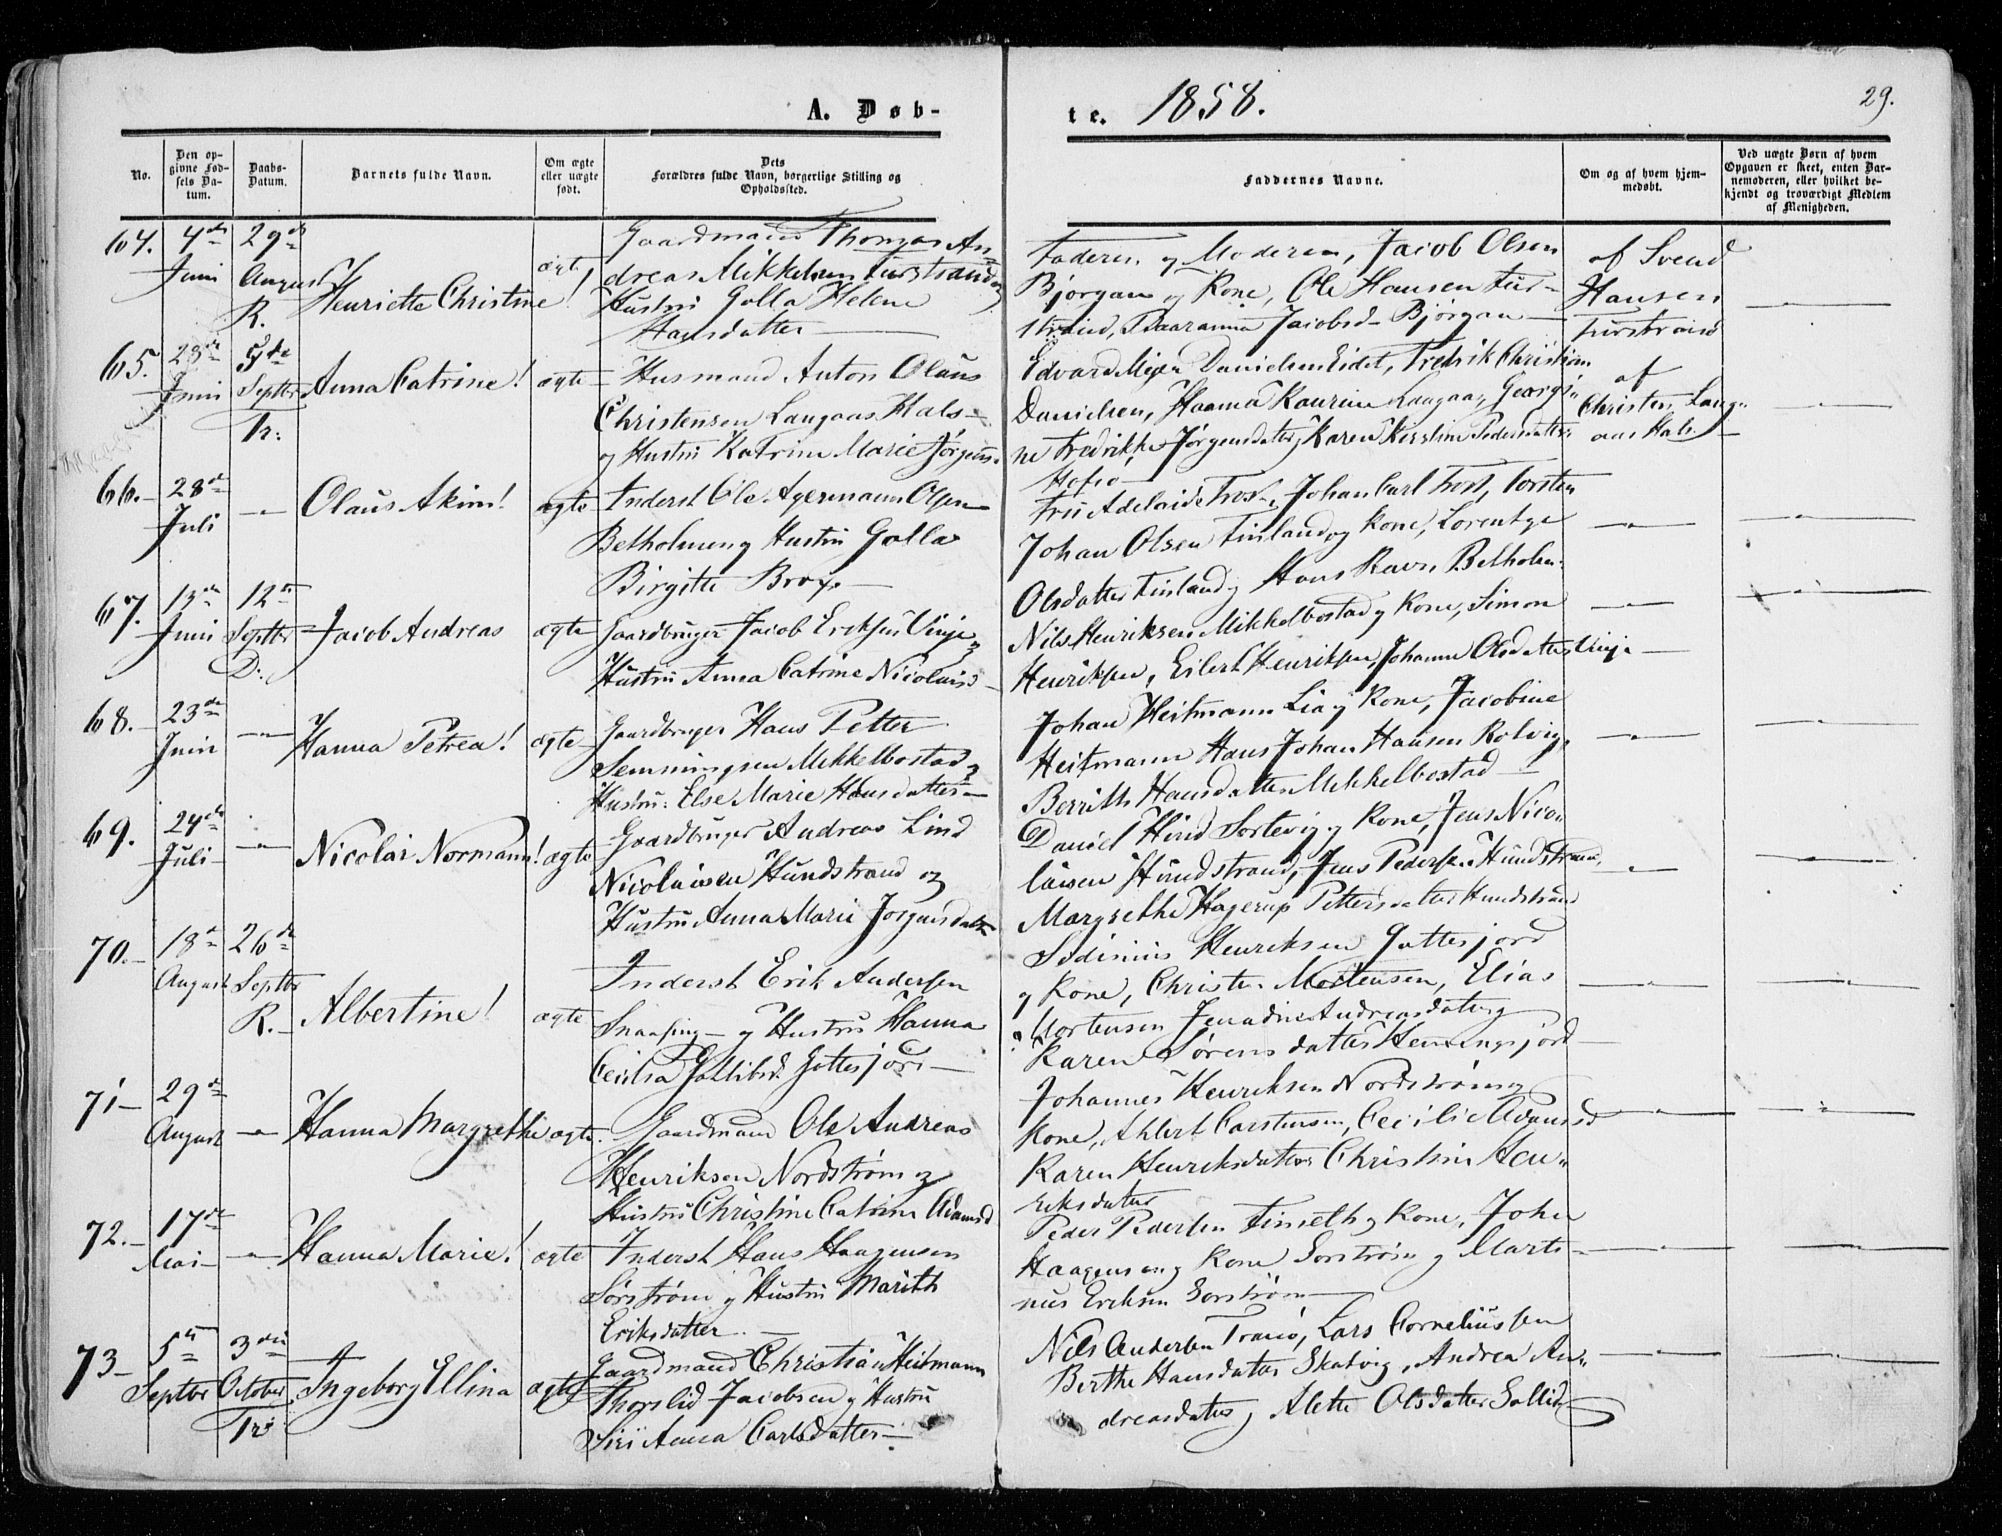 A. Døb-
te. 1858.
29.
No.
Den op-
givne Fød-
sels Da-
tum.
Daabs-
Datum.
Barnets fulde Navn.
Om ægte
eller uægte
født.
Dets
Forældres fulde Navn, borgerlige Stilling og
Opholdssted.
Faddernes Navne.
Om og af hvem hjem-
medøbt.
Ved uægte Børn af hvem
Opgaven er skeet, enten Bar-
nemoderen, eller hvilket be-
kjendt og troværdigt Medlem
af Menigheden.
64. 4de Juni
29de August R.
Henriette Christine!
ægte
Gaardmand Thomas An-
dreas Mikkelsen Furstrand og
Hustru Golla Helene
Hansdatter
Faderen og Moderen, Jacob Olsen
Bjørgan og Kone, Ole Hansen Fur-
strand, Jacobsd Bjørgan
af Svend
Hansen
Furstrand
65. 28de Juni
5te Septbr Tr:
Anna Catrine!
ægte
Husmand Anton Olaus
Christensen Langaas Hals
og Hustru Katrine Marie Jørgens.
Edvard Meyer Danielsen Eidet, Fredrik Christian
Danielsen, Hanna Kaurine Langaas, Georgi-
ne Fredrikke Jørgensdatter, Karen Kirstine Pedersdatter
Hofsø
af
Christen Lang-
aas Hals
66. 28de Juli
Olaus Akim!
ægte
Inderst Ole Agermann Olsen
Betholmen og Hustru Golla
Birgitte Brox
Fru Adelaide Frost, Johan Carl Frost, Torsten
Johan Olsen Finland og Kone, Lorentze
Olsdatter Finland og Hans Ravn Betholm.
67. 13de Juni
12te Septbr D:
Jacob Andreas
ægte
Gaardbruger Jacob Eriksen Vinje og
Hustru Anna Catrine Nicolaisd
Nils Henriksen Mikkelbostad og Kone, Simon
Henriksen, Eilert Henriksen, Johanna Olsdatter Vinje
68. 23de Juni
Hanna Petrea!
ægte
Gaardbruger Hans Petter
Semmingsen Mikkelbostad og
Hustru: Else Marie Hansdatter
Johan Heitmann Lia og Kone, Jacobine
Heitmann Hans Johan Hansen Rolvig,
Berrith Hansdatter Mikkelbostad
69. 24de Juli
Nicolai Normann!
ægte
Gaardbruger Andreas Lind
Nicolaisen Hundstrand og
Hustru Anna Marie Jørgensdatter
Daniel Hind Sortevig og Kone, Jens Nico-
laisen Hundstrand, Jens Pedersen Hundstrand,
Margrethe Hagerup Pettersdatter Hundstrand
70. 18de August
26de Septbr R.
Albertine!
ægte
Inderst Erik Andersen
og Hustru Hanna
Cecilia Gottesjord
Henriksen Gottesjord
og Kone, Christen Mortensen, Elias
Mortensen Andreasdatter og
Karen Sørensdatter Henningsjord
71 29de August
Hanna Margrethe
ægte
Gaardmand Ole Andreas
Henriksen Nordstrøm og
Hustru Christine Catrine Adamsd
Johannes Henriksen Nordstrøm og
Kone, Ahlert Carstensen, Cecilie Adamsd
Karen Henriksdatter Christine Hen-
riksdatter
72. 17de Mai
Hanna Marie!
ægte
Inderst Hans Haagensen
Sørstrøm og Hustru Marith
Eriksdatter
Peder Pedersen Finseth og Kone, John
Haagensen og Kone Sørstrøm og Marti-
nus Eriksen Sørstrøm
73 5te Septbr
3die October Tr:
Ingeborg Ellina
ægte
Gaardmand Christian Heitmann
Thorslid Jacobsen og Hustru
Siri Anna Carlsdatter
Nils Andersen Tranø, Lars Corneliussen
Berthe Hansdatter Skatvig, Andrea An-
dreasdatter og Alette Olsdatter Sollid